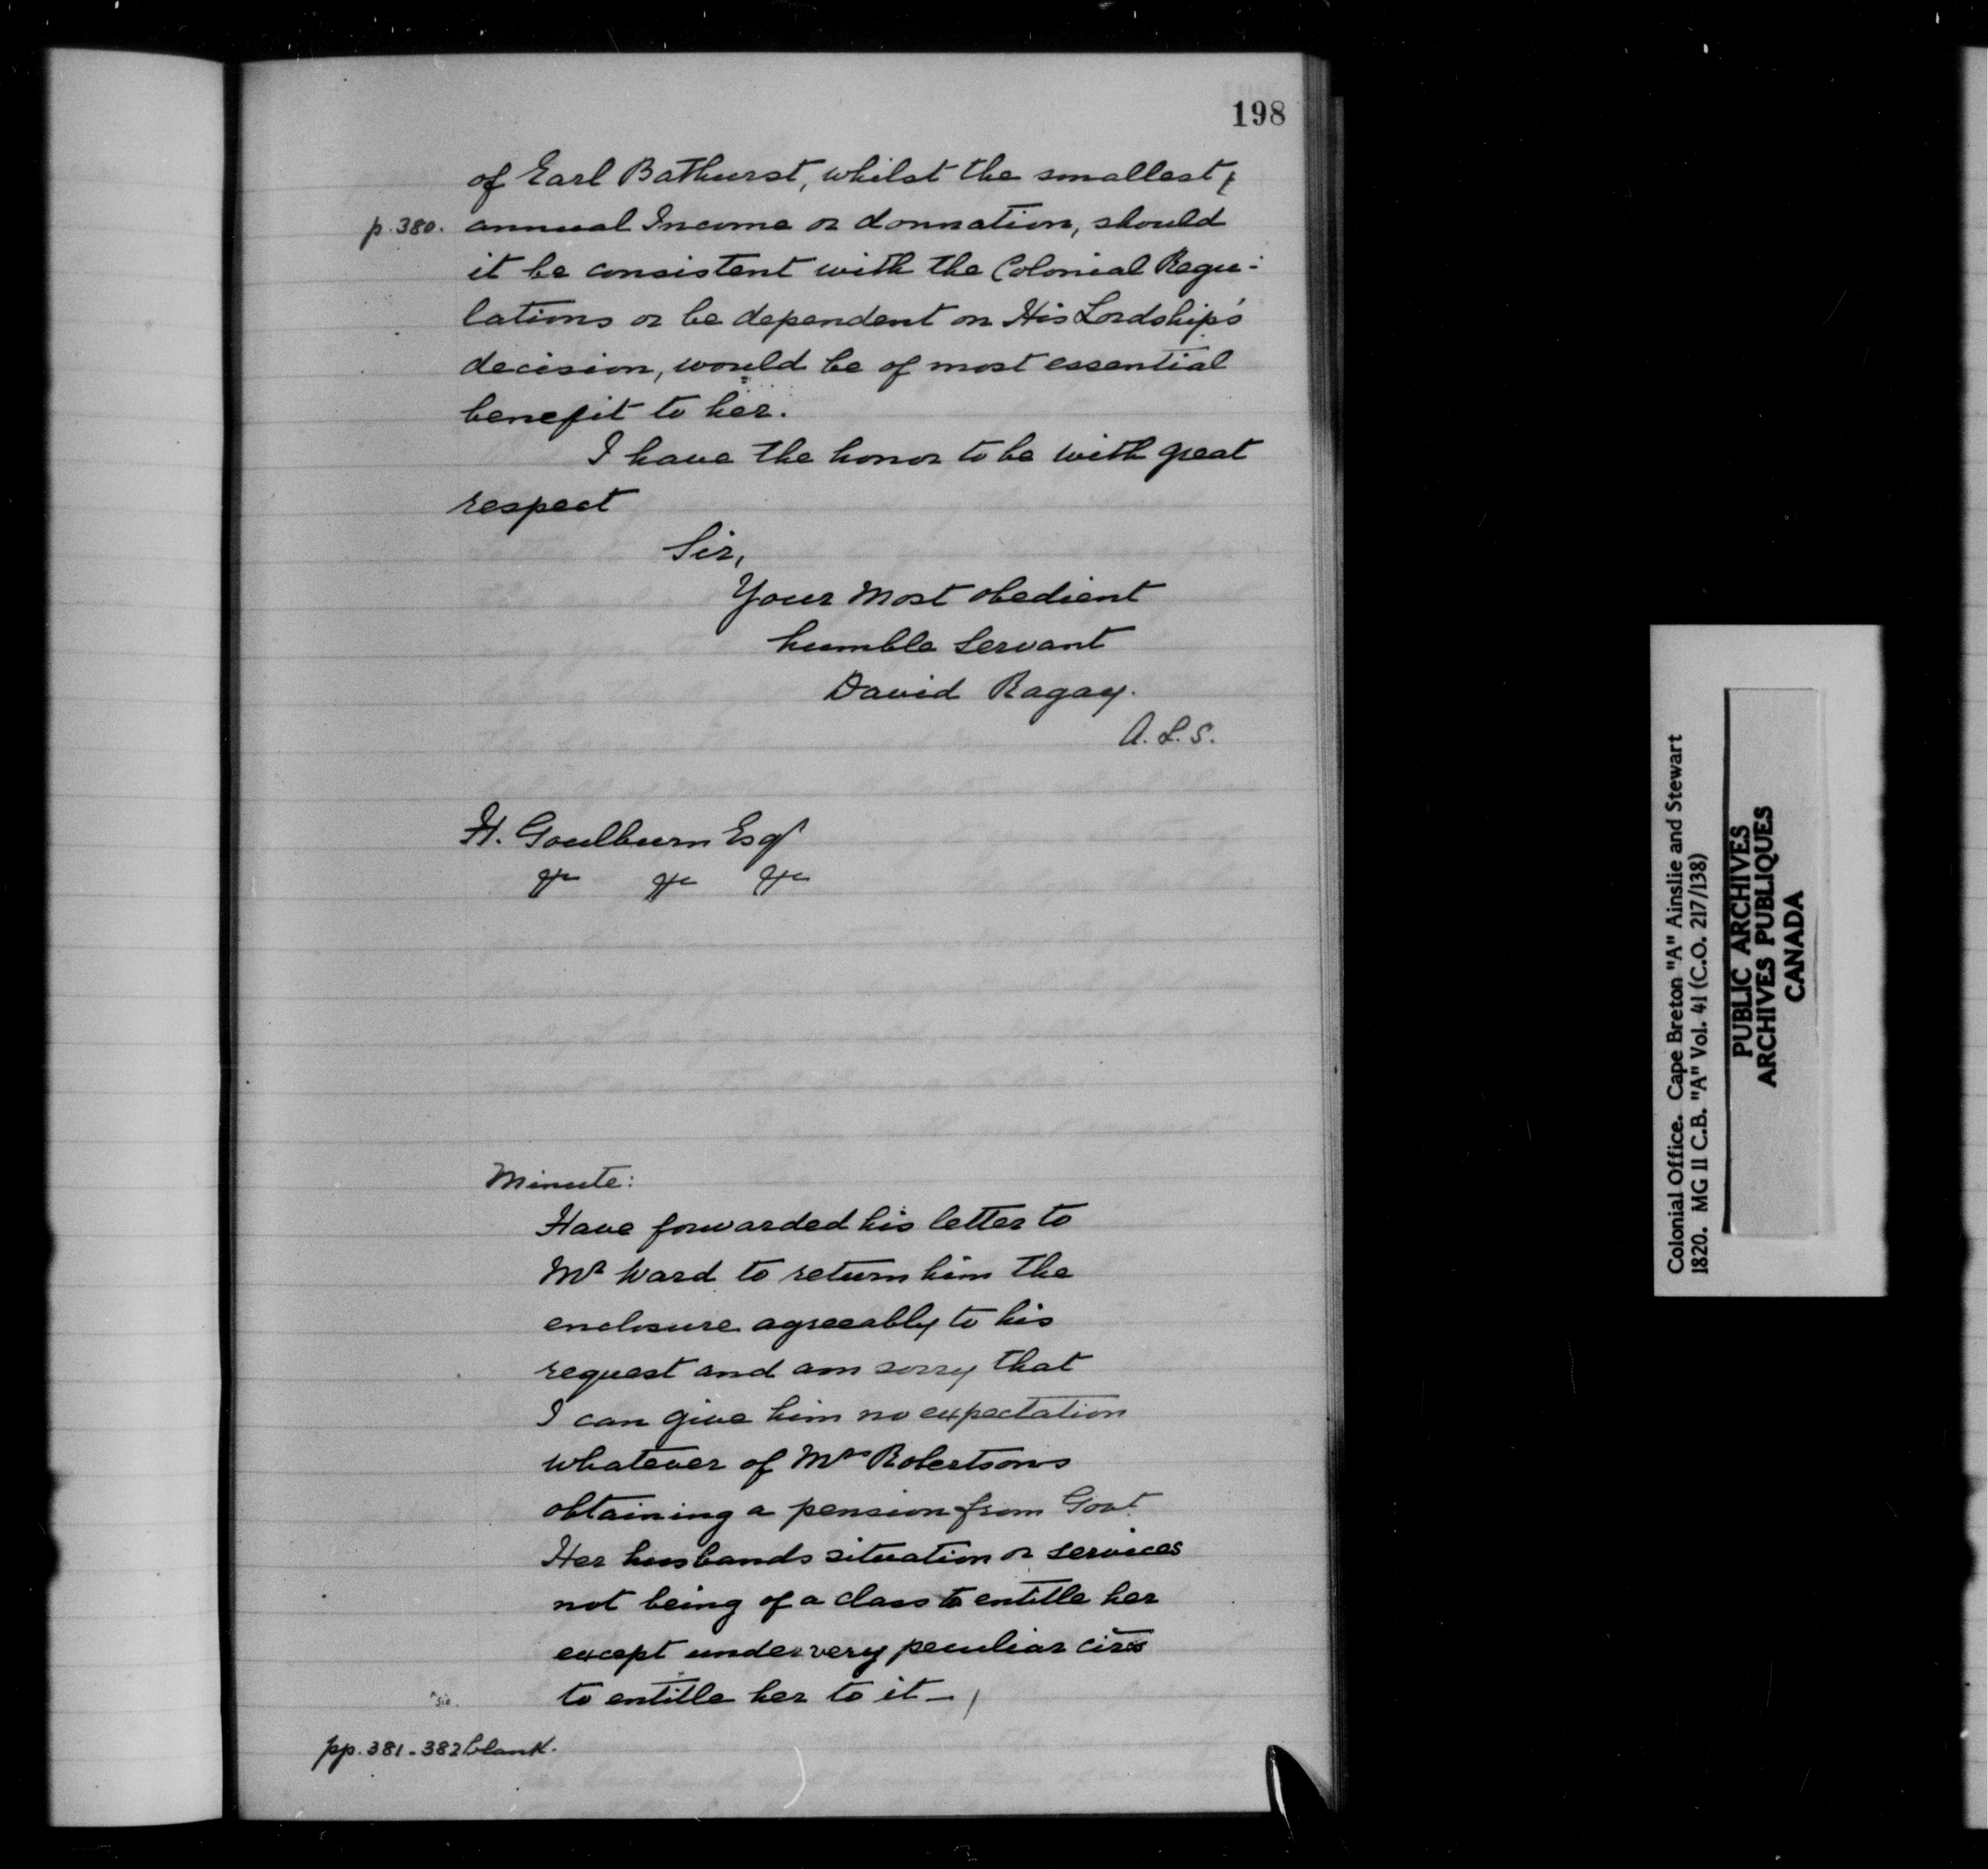 198
of Earl Bathurst, whilst the smallest
p. 380. annual Income or donnation, should
it be consistent with the Colonial Regu-
lations or be dependent on His Lordship's
decision, would be of most essential
benefit to her.
I have the honor to be with great
respect
Sir,
Your Most obedient
humble Servant
David Ragay.
A.L.S.
H. Goulburn Esqr
&c &c &c
Minute:
Have forwarded his letter to
Mr Ward to return him the
enclosure agreeably to his
request and am sorry that
I can give him no expectation
whatever of Mrs Robertsons
obtaining a pension from Govt.
Her husbands situation or services
not being of a class to entitle her
except under very peculiar circs
to entitle her to it—
sic.
pp. 381-382 blank.
Colonial Office. Cape Breton "A" Ainslie and Stewart
1820. MG 11 C.B. "A" Vol. 41 (C.O. 217/138)
PUBLIC ARCHIVES
ARCHIVES PUBLIQUES
CANADA